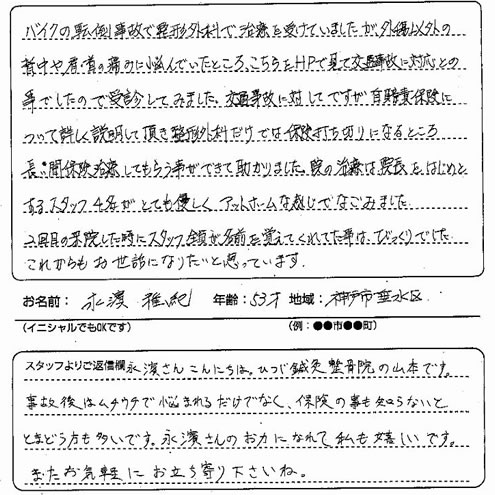 バイクの転倒事故で整形外科で治療を受けていましたが、外傷以外の
背中や肩・首の痛みに悩んでいたところ、こちらをHPで見て交通事故に対応との
事でしたので受診してみました。交通事故に対してですが自賠責保険に
ついて詳しく説明して頂き整形外科だけでは保険打ち切りになるところ
長い間保険治療してもらう事ができて助かりました。院の治療は院長をはじめと
するスタッフ4名がとても優しくアットホームな感じでなごみました
2回目の来院した時にスタッフ全員が名前を覚えてくれてた事は、びっくりでした
これからもお世話になりたいと思っています。
お名前: 永濱 雅紀 年齢:53才 地域:神戸市垂水区
(イニシャルでもOKです) (例:●●市●●町)
スタッフよりご返信欄 永濱さんこんにちは。ひつじ鍼灸整骨院の山本です。
事故後はムチウチで悩まれるだけでなく、保険の事も知らないと
とまどう方も多いです。永濱さんのお力になれて私も嬉しいです。
またお気軽にお立ち寄り下さいね。